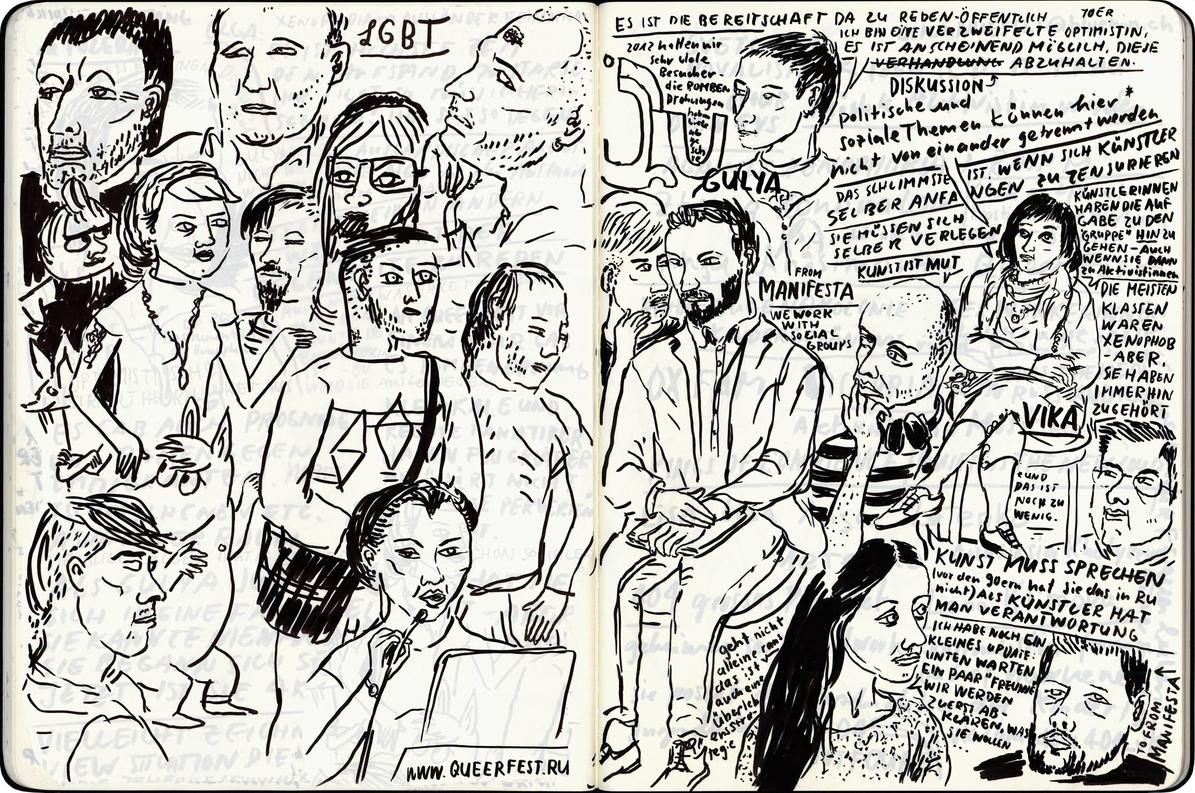 LGBT
WWW.QUEERFEST.RU
ES IST DIE BEREITSCHAFT DA ZU REDEN-ÖFFENTLICH
ICH BIN EINE VERZWEIFELTE OPTIMISTIN,
ES IST ANSCHEINEND MÖGLICH, DIESE
VERHANDLUNG ABZUHALTEN.
DISKUSSION
2012 hatten wir
sehr viele
Besucher-
die BOMBEN
Drohungen
GULYA
politische und
soziale Themen können hier*
nicht von einander getrennt werden
DAS SCHLIMMSTE IST, WENN SICH KÜNSTLER
SELBER ANFANGEN ZU ZENSURIEREN
SIE MÜSSEN SICH
SELBER VERLEGEN
KUNST IST MUT
FROM
MANIFESTA
WE WORK
WITH
SOCIAL
GROUPS
KÜNSTLERINNEN
HABEN DIE AUF
GABE ZU DEN
"GRUPPE" HIN ZU
GEHEN-AUCH
WENN SIE DANN
zu Aktivistinnen
DIE MEISTEN
KLASSEN
WAREN
XENOPHOB
-ABER,
SIE HABEN
IMMERHIN
ZUGEHÖRT
VIKA
UND
DAS IST
NOCH ZU
WENIG.
KUNST MUSS SPRECHEN
(vor den goern hat sie das in RU
nicht) ALS KÜNSTLER HAT
MAN VERANTWORTUNG
ICH HABE NOCH EIN
KLEINES UPDATE:
UNTEN WARTEN
EIN PAAR "FREUNDE"
WIR WERDEN
ZUERST AB-
KLÄREN, WAS
SIE WOLLEN
geht nicht
alleine raus
das ist
auch eine
Überlebensstrategie
MANIFESTA